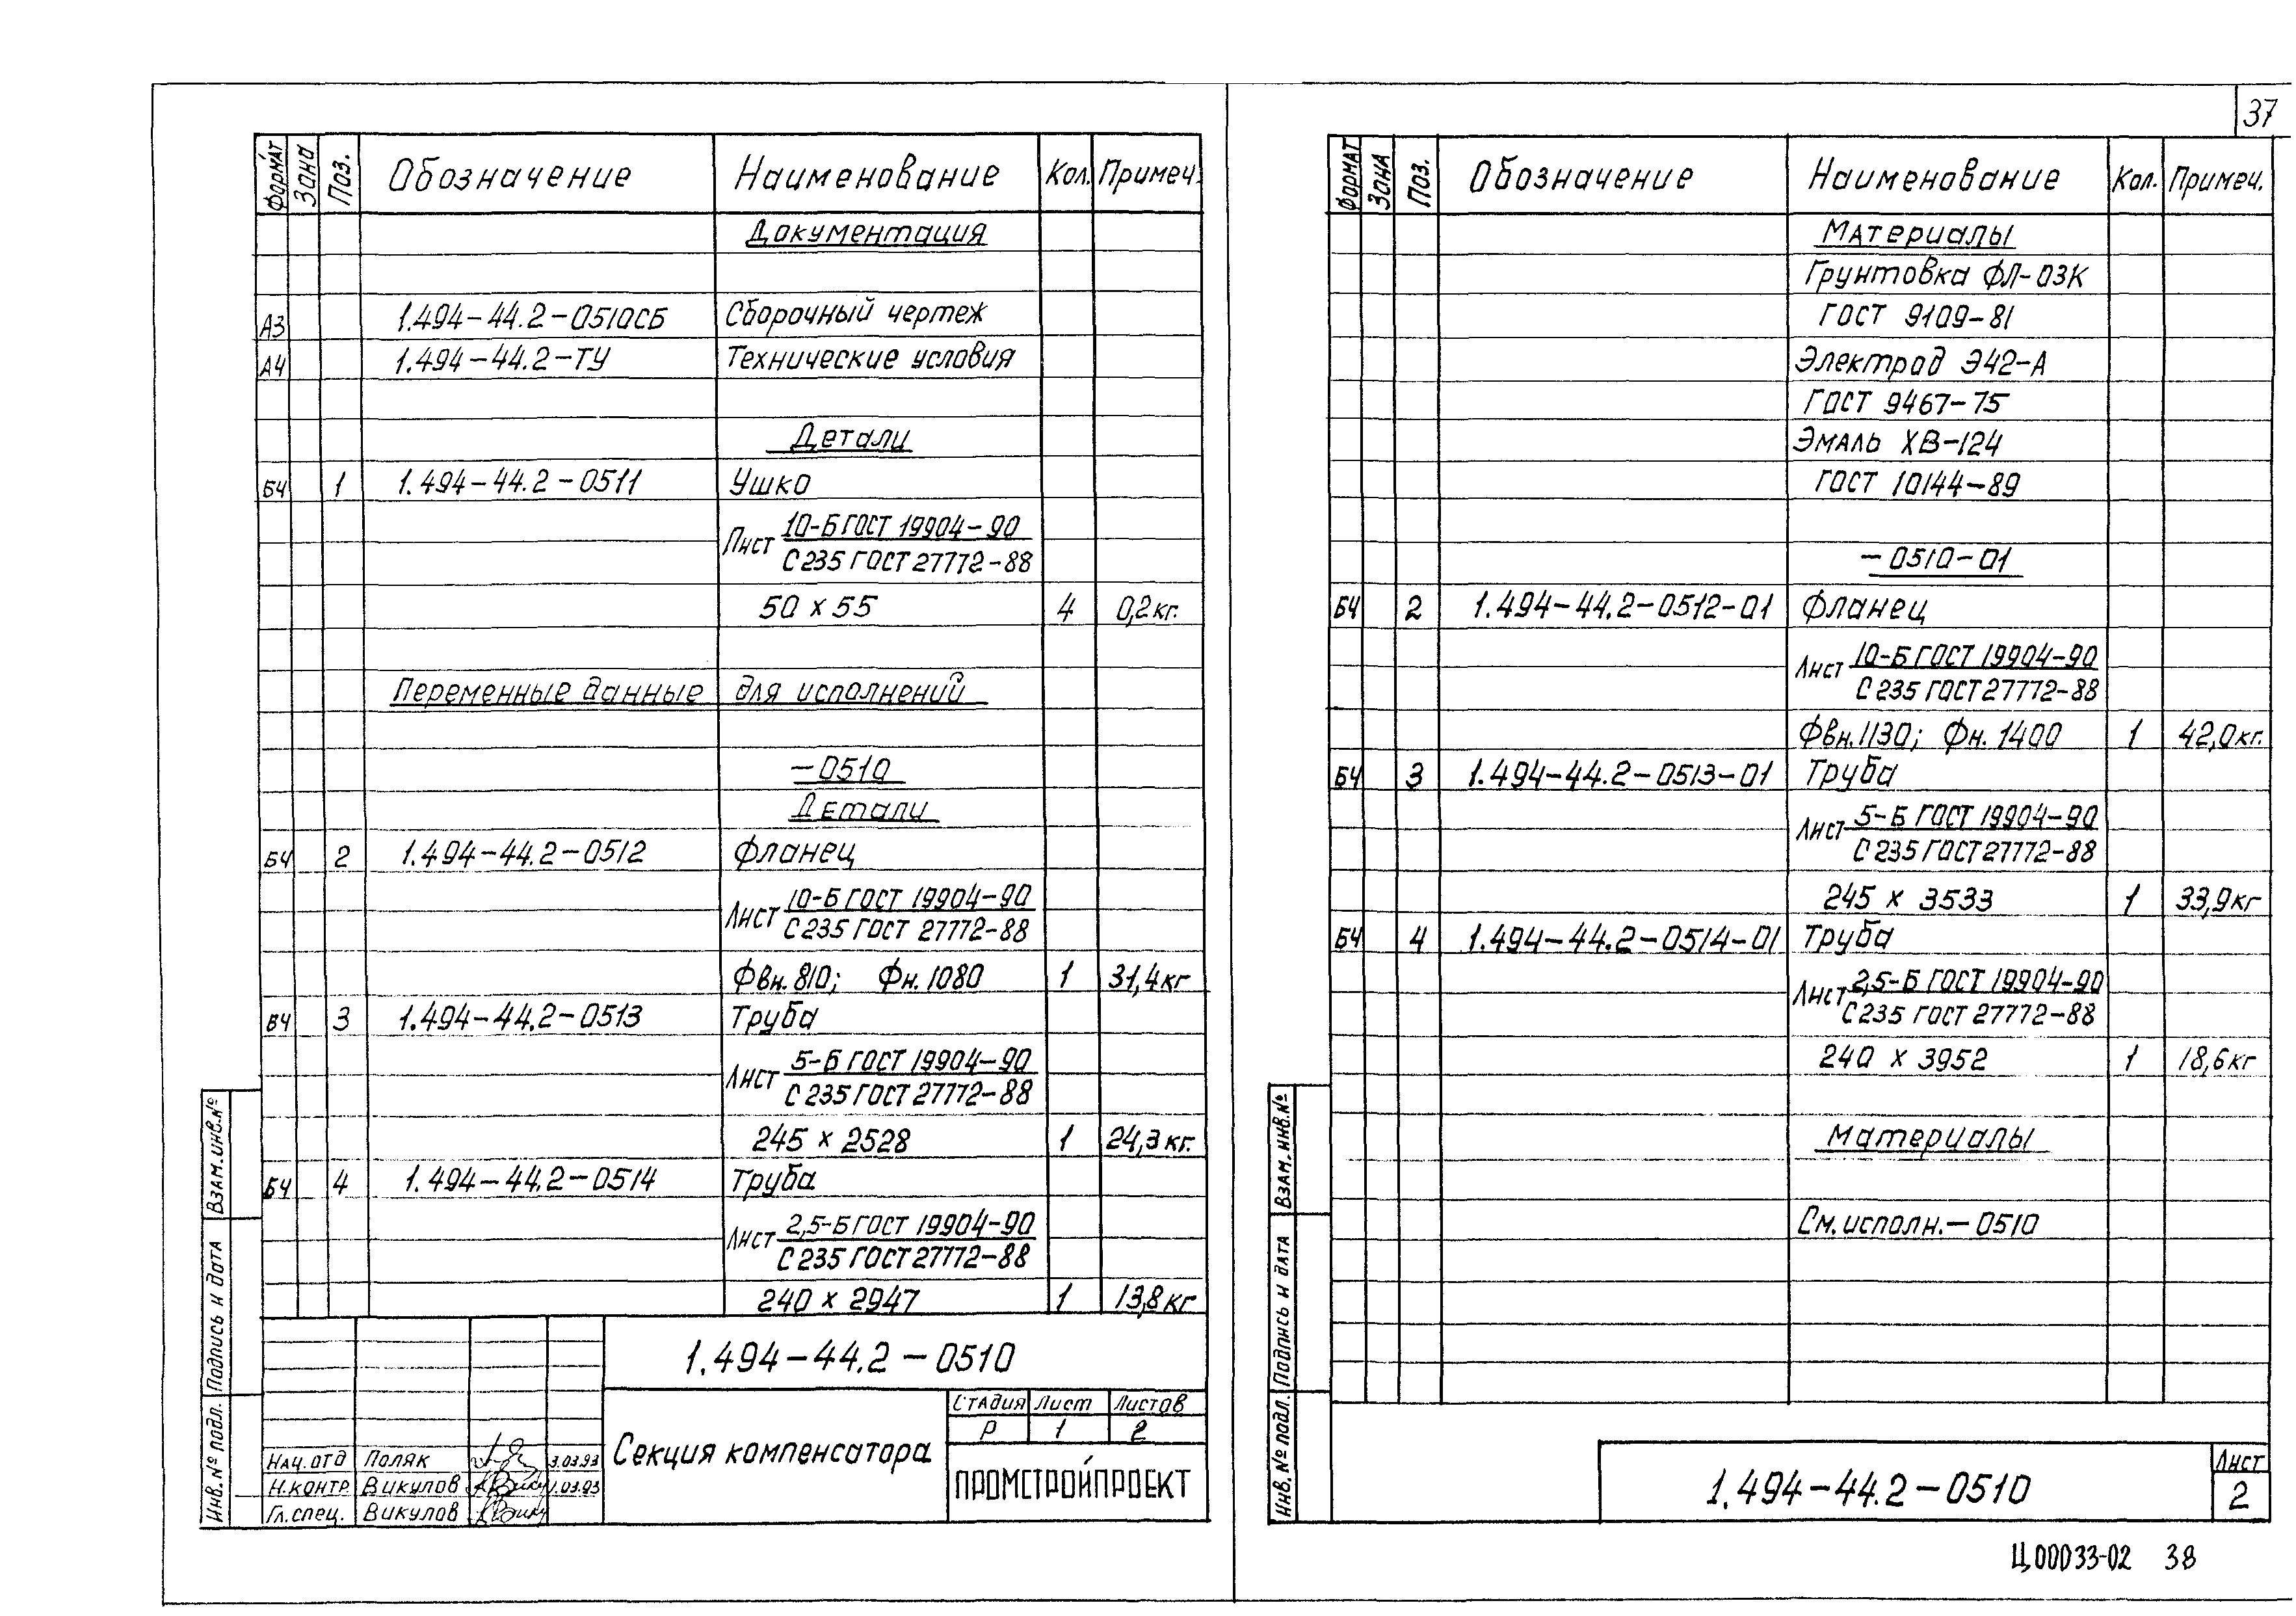 37
Формат Зона Поз. Обозначение Наименование Кол. Примеч.
Документация
А3 1.494-44.2-0510СБ Сборочный чертеж
А4 1.494-44.2-ТУ Технические условия
Детали
БЧ 1 1.494-44.2-0511 Ушко
Лист 10-Б ГОСТ 19904-90
С235 ГОСТ 27772-88
50 х 55 4 0,2кг.
Переменные данные для исполнений
-0510
Детали
БЧ 2 1.494-44.2-0512 Фланец
Лист 10-Б ГОСТ 19904-90
С235 ГОСТ 27772-88
Фвн. 810; Фн. 1080 1 31,4кг
БЧ 3 1.494-44.2-0513 Труба
Лист 5-Б ГОСТ 19904-90
С235 ГОСТ 27772-88
245 х 2528 1 24,3кг.
БЧ 4 1.494-44.2-0514 Труба
Лист 2,5-Б ГОСТ 19904-90
С235 ГОСТ 27772-88
240 х 2947 1 13,8кг
1.494-44.2-0510
Секция компенсатора
Стадия Лист Листов
Р 1 2
ПРОМСТРОЙПРОЕКТ
Нач.отд Поляк 3.03.93
Н.контр. Викулов 1.03.93
Гл.спец. Викулов
Взам.инв.№
Подпись и дата
Инв.№ подл.
Формат Зона Поз. Обозначение Наименование Кол. Примеч.
Материалы
Грунтовка ФЛ-03К
ГОСТ 9109-81
Электрод Э42-А
ГОСТ 9467-75
Эмаль ХВ-124
ГОСТ 10144-89
-0510-01
БЧ 2 1.494-44.2-0512-01 Фланец
Лист 10-Б ГОСТ 19904-90
С235 ГОСТ 27772-88
Фвн. 1130; Фн. 1400 1 42,0кг.
БЧ 3 1.494-44.2-0513-01 Труба
Лист 5-Б ГОСТ 19904-90
С235 ГОСТ 27772-88
245 х 3533 1 33,9кг
БЧ 4 1.494-44.2-0514-01 Труба
Лист 2,5-Б ГОСТ 19904-90
С235 ГОСТ 27772-88
240 х 3952 1 18,6кг
Материалы
См. исполн.-0510
Взам.инв.№
Подпись и дата
Инв.№ подл.
1.494-44.2-0510
Лист
2
Ц00033-02 38